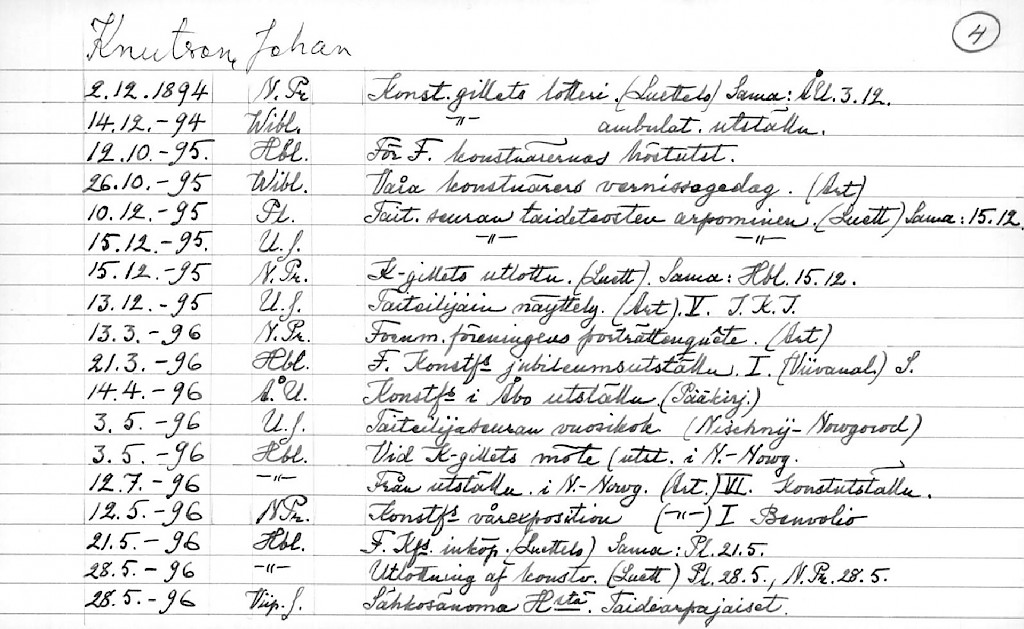 Knutson, Johan 4
2.12.1894 N.Pr. Konst.gillets lotteri. (Luettelo) Sama: ÅU. 3.12.
14.12.-94 Wibl. -"- ambulat. utställn.
12.10.-95. Hbl. För F. konstnärernas höstutst.
26.10.-95 Wibl. Våra konstnärers vernissagedag. (Art)
10.12.-95 Pl. Tait. seuran taideteosten arpominen. (Luett) Sama: 15.12.
15.12.-95. U.S. -"- -"-
15.12.-95 N.Pr. K-gillets utlottn. (Luett). Sama: Hbl. 15.12.
13.12.-95 U.S. Taiteilijain näyttely. (Art). V. J.K.I.
13.3.-96 N.Pr. Fornm. föreningens porträttenquête. (Art)
21.3.-96 Hbl. F. Konstfs jubileumsutställn. I. (Viivanal.) S.
14.4.-96 Å.U. Konstfs i Åbo utställn. (Pääkirj.)
3.5.-96 U.S. Taiteilijaseuran vuosikok (Nischnij-Nowgorod)
3.5.-96 Hbl. Vid K-gillets möte (utst. i N.-Nowg.
12.7.-96 -"- Från utställn. i N.-Nowg. (Art.) VI. Konstutställn.
12.5.-96 NPr. Konstfs vårexposition (-"-) I Benvolio
21.5.-96 Hbl. F. Kfs. inköp. (Luettelo) Sama: Pl. 21.5.
28.5.-96 -"- Utlottning af konstv. (Luett) Pl. 28.5., N.Pr. 28.5.
28.5.-96 Viip.S. Sähkösanoma Hstä. Taidearpajaiset.